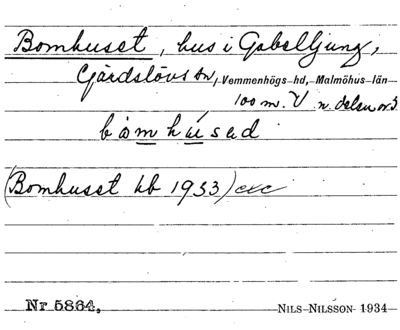 Bomhuset, hus i Gabelljung,
Gärdslövs sn, Vemmenhögs hd, Malmöhus län
100 m. V n. delen
bòmhúsad
(Bomhuset kb 1933)
Nr 5864.
NILS NILSSON 1934